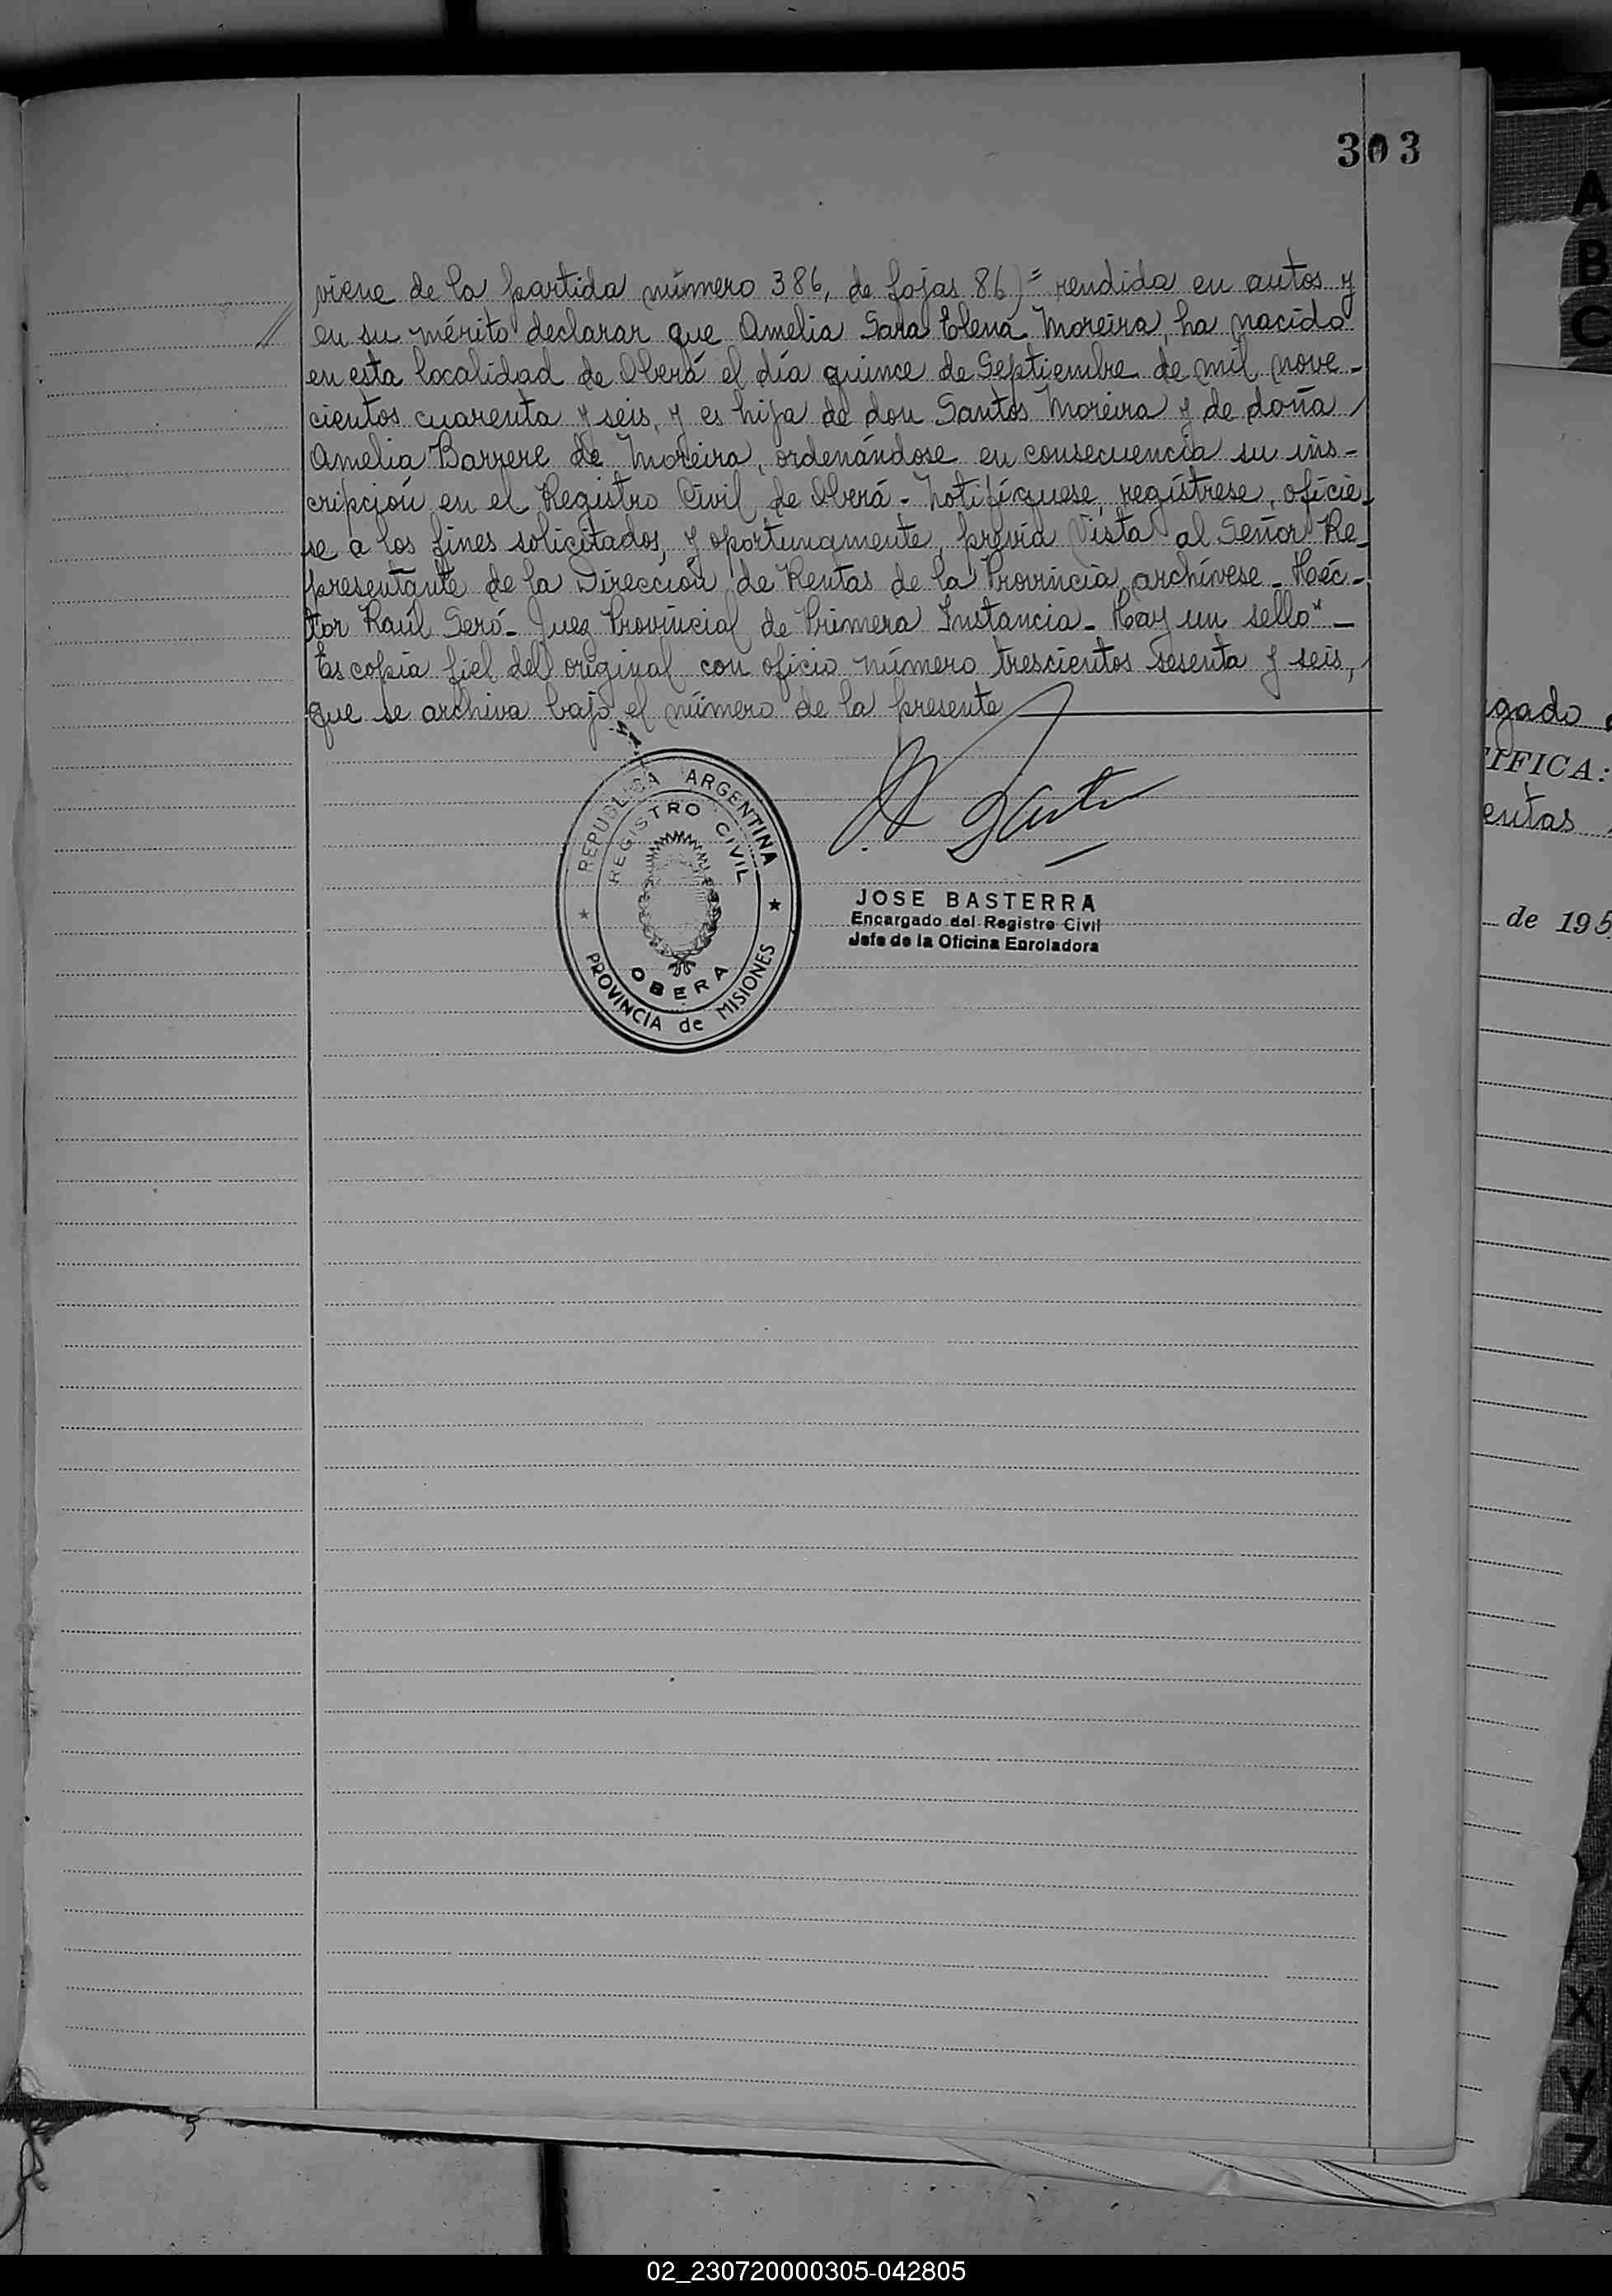 303
viene de la partida número 386, de fojas 86)= rendida en autos y
// en su mérito declarar que Amelia Sara Elena Moreira, ha nacido
en esta localidad de Oberá el día quince de Septiembre de mil nove-
cientos cuarenta y seis, y es hija de don Santos Moreira y de doña
Amelia Barrere de Moreira, ordenándose en consecuencia su ins-
cripción en el Registro Civil de Oberá - Notifíquese, regístrese, oficie-
se a los fines solicitados, y oportunamente, previa Vista al Señor Re-
presentante de la Dirección de Rentas de la Provincia, archívese - Héc-
tor Raúl Seró - Juez Provincial de Primera Instancia - Hay un sello" -
Es copia fiel del original con oficio número trescientos sesenta y seis,
que se archiva bajo el número de la presente
REPUBLICA ARGENTINA
REGISTRO CIVIL
OBERA
PROVINCIA de MISIONES
JOSE BASTERRA
Encargado del Registro Civil
Jefe de la Oficina Enroladora
gado
IFICA:
entas
de 195
A
B
C
X
Y
Z
02_230720000305-042805